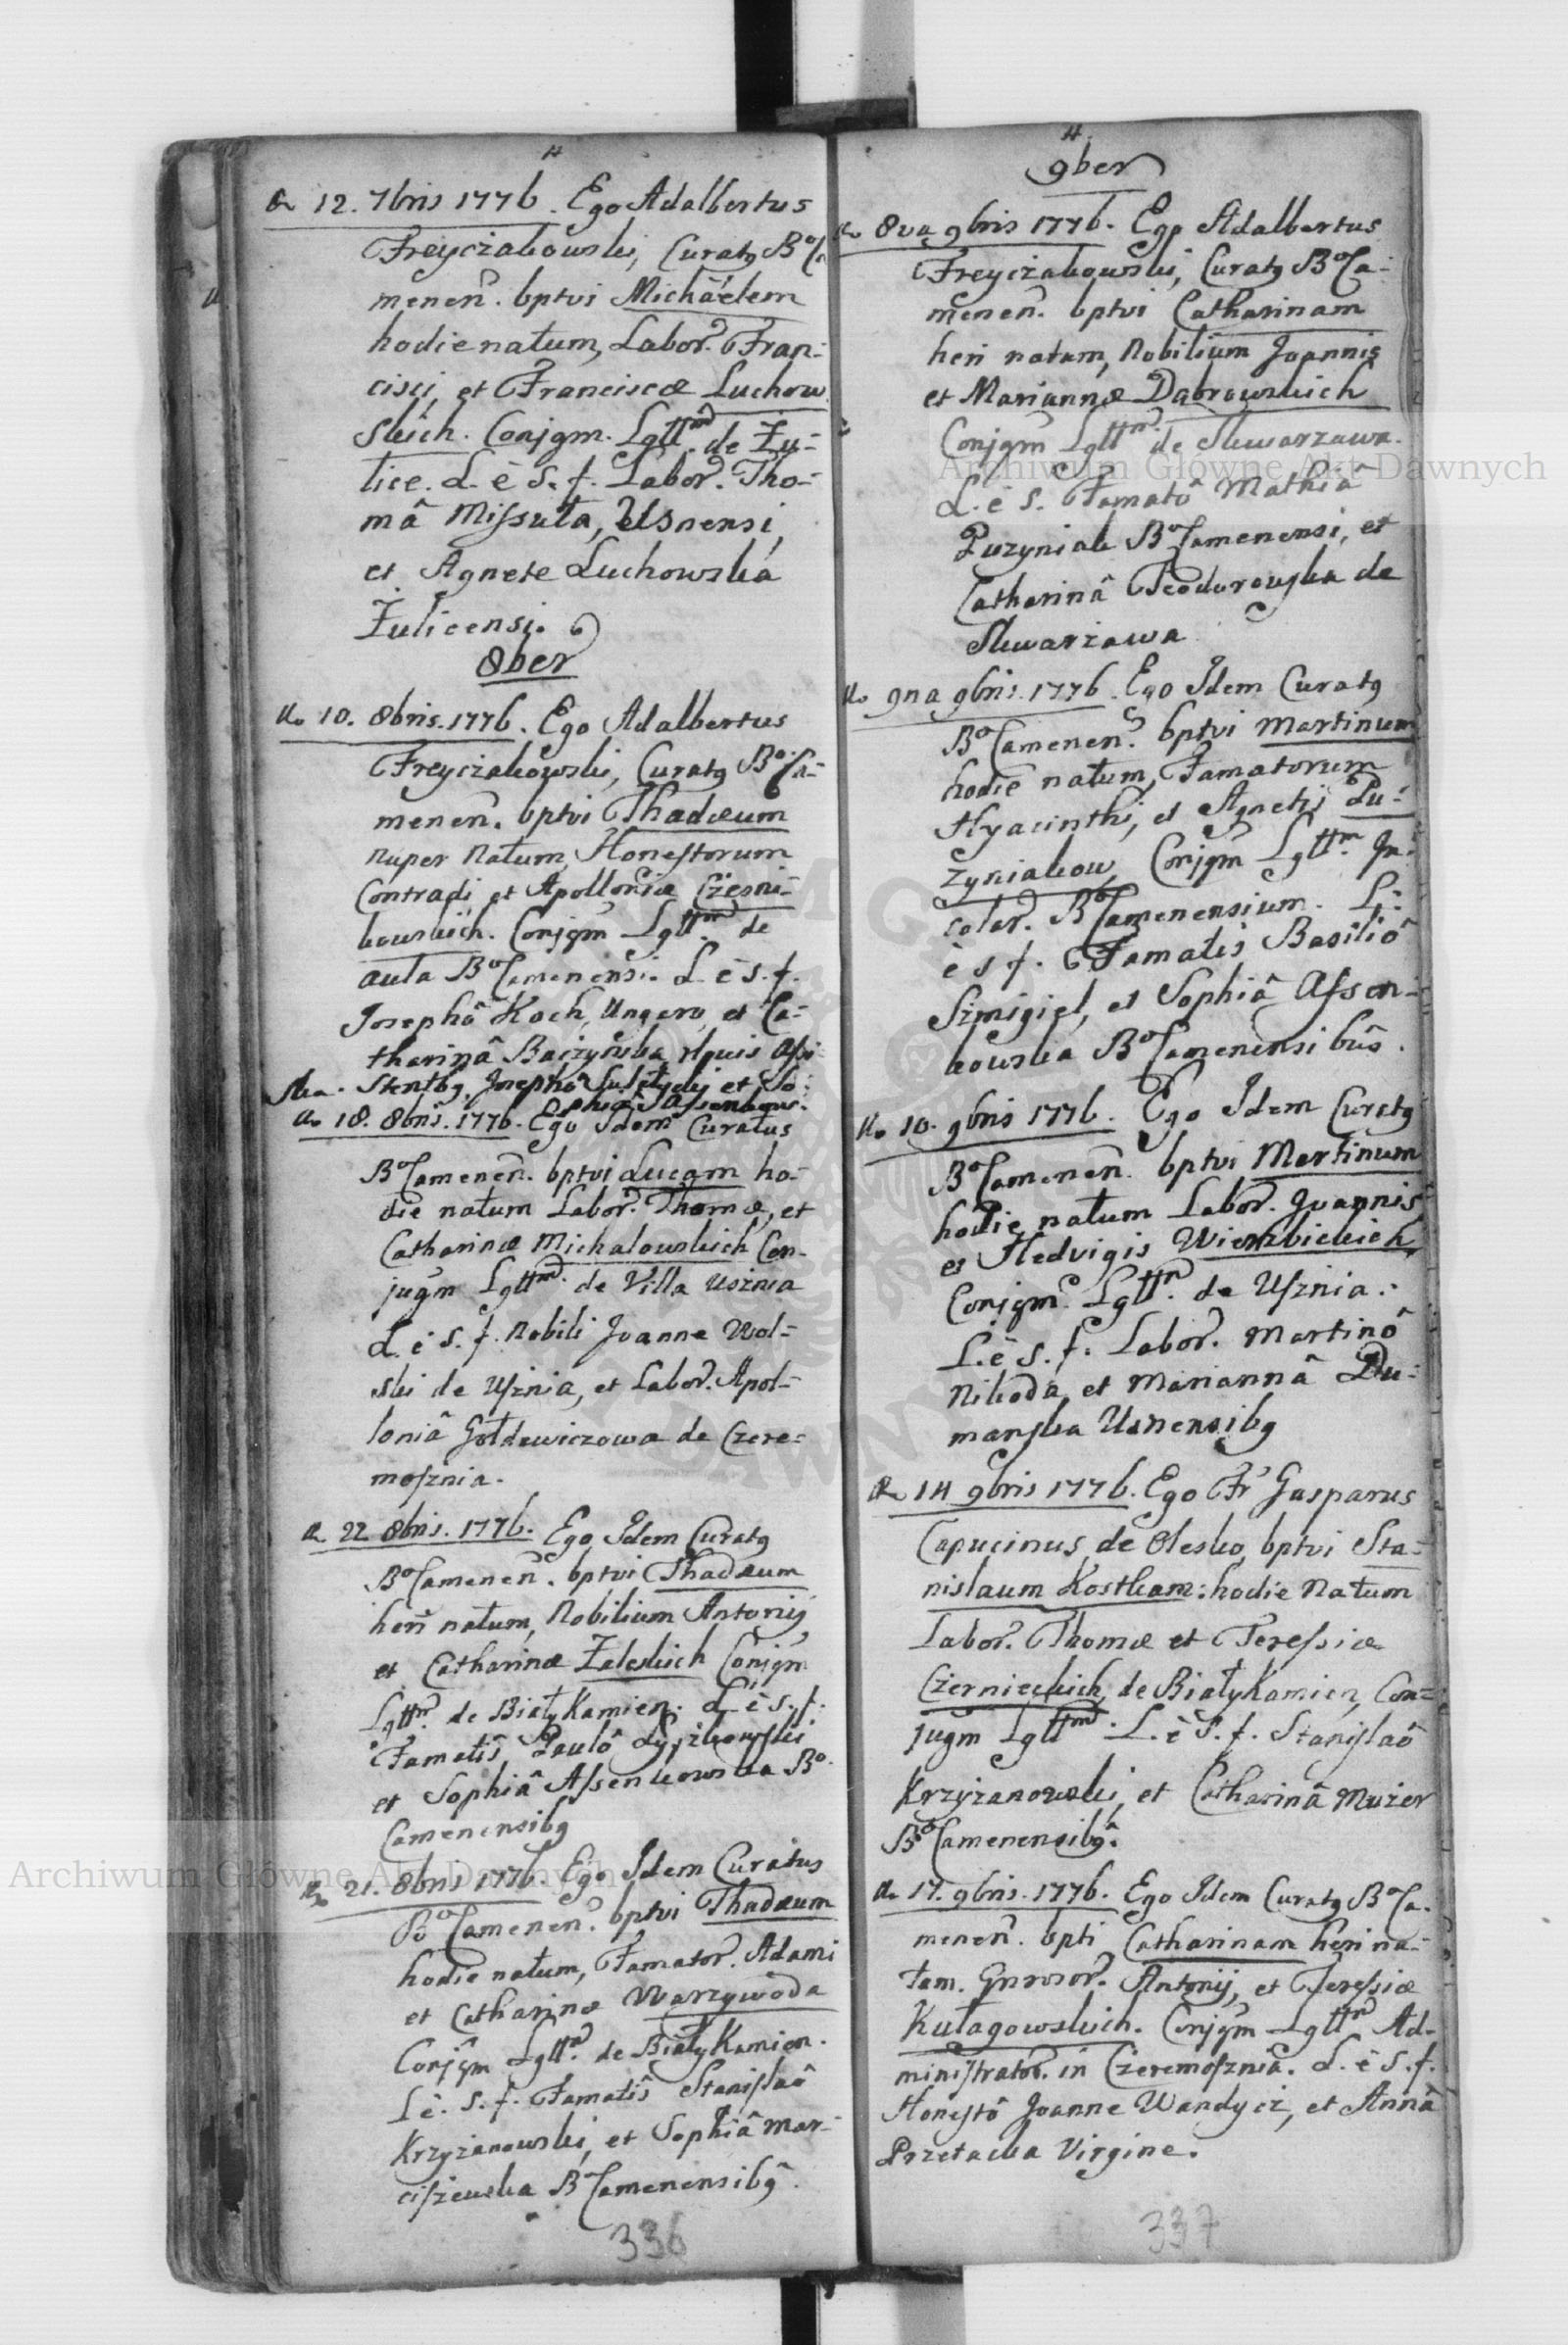 12. 7bris 1776. Ego Adalbertus
Freyciżakowski, Curatq BoCa
menen. bptvi Michaëlem
hodie natum, Labor. Fran-
cisci, et Franciscæ Luchow
skich. Conjgm. Lgttm de Żu-
lice. L. è S. f. Labor. Tho-
mâ Missuta, Usnensi,
et Agnete Luchowska
Żulicensi.
8ber
10. 8bris. 1776. Ego Adalbertus
Freyciżakowski, Curatq BoCa-
menen. bptvi Thadæum
nuper Natum, Honestorum
Contradi et Apolloniæ Cżesni-
kowskich. Conjgm Lgttm de
aula BoCamenensi. L. è S. f.
Josephô Koch, Ungaro, et Ca-
tharinâ Baczyńska, rlquis Assi-
Stentbq, Josephô et So-
phiâ Assenkows-
ska.
18. 8bris. 1776. Ego Idem Curatus
BoCamenen. bptvi Lucam ho-
die natum Labor. Thomæ, et
Catharinæ Michalowskich Con-
jugm Lgttm. de Villa Usznia
L. è S. f. Nobili Joanne Wol-
ski de Usznia, et Labor. Apol-
loniâ Gołdewiczowa de Czere-
mosznia.
22 8bris. 1776. Ego Idem Curatq
BoCamenen. bptvi Thadæum
heri natum, Nobilium Antonij
et Catharinæ Zaleskich Conjgm
Lgttm. de BiałyKamien. L. è S. f.
Famatis, Paulô
et Sophiâ Assenkowska Bo
Camenensibq
21. 8bris 1776. Ego Idem Curatus
BoCamenen. bptvi Thadæum
hodie natum, Famator. Adami
et Catharinæ Warzywoda
Conjgm Lgttm. de BiałyKamien.
L è. S. f. Famatis Stanislaô
Krzyżanowski, et Sophiâ Mar-
ciszewska BoCamenensibq.
336
9ber
8va 9bris 1776. Ego Adalbertus
Freyciżakowski, Curatq BoCa-
menen. bptvi Catharinam
heri natam, Nobilium Joannis
et Mariannæ Dąbrowskich
Conjgm Lgttm. de Skwarzawa.
L. è S. Famatô Mathiâ
Puzyniak BoCamenensi, et
Catharinâ Teodorowska de
Skwarzawa
9na 9bris. 1776. Ego Idem Curatq
BoCamenen. bptvi Martinum
hodie natum, Famatorum
Hyacinthi, et Agnetis Pu-
zyniakow, Conjgm Lgttm. In-
color. BoCamenensium. L.
è S f. Famatis Basiliô
Szmigiel, et Sophiâ Assen-
kowska BoCamenensibus.
10. 9bris 1776. Ego Idem Curatq
BoCamenen. bptvi Martinum
hodie natum Labor. Joannis
et Hedvigis Wierzbickich,
Conjgm. Lgttm. de Usznia.
L. è S. f. Labor. Martinô
Nikoda, et Mariannâ Du-
manska Usnensibq
14 9bris 1776. Ego Fr Gasparus
Capucinus de Olesko, bptvi Sta-
nislaum Kostkam: hodie Natum
Labor. Thomæ et Teressiæ
Cżernieckich, de BiałyKamien, Con-
jugm Lgttm. L. è S. f. Stanislaô
Krzyżanowski, et Catharinâ Muzer
BoCamenensibq.
17. 9bris. 1776. Ego Idem Curatq BoCa-
menen. bpti Catharinam heri na-
tam. Gnrosor. Antonij, et Teressiæ
Kułagowskich. Conjgm Lgttm Ad-
ministrator. in Czeremosznia. L. è S. f.
Honestô Joanne Wandycz, et Annâ
Przetacka Virgine.
337
Archiwum Główne Akt Dawnych
Archiwum Główne Akt Dawnych